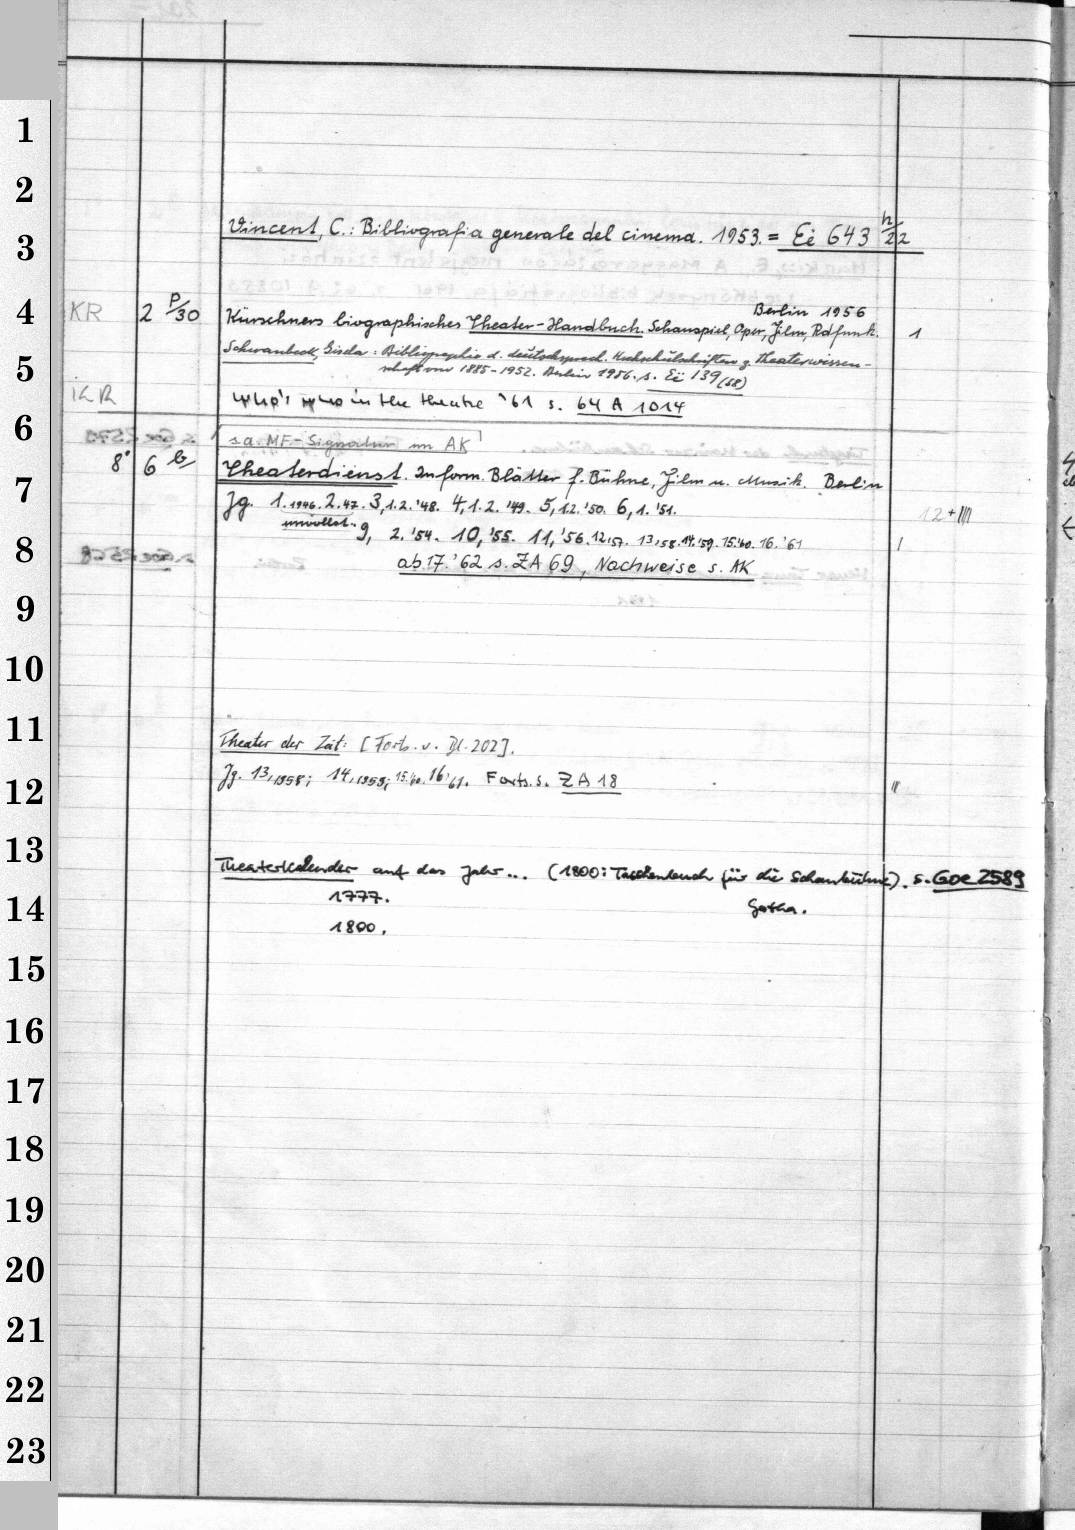 1
2
3
Vincent, C.: Bibliografia generale del cinema. 1953. = Ei 643 n/22
4
Berlin 1956
KR 2 P/30 Kürschners biographisches Theater-Handbuch. Schauspiel, Oper, Film, Rdfunk. 1
5
Schwanbeck, Gisela: Bibliographie d. deutschsprach. Hochschulschriften z. Theaterwissen-
schaft von 1885-1952. Berlin 1956. s. Ei 139 (58)
KR who's who in the theatre '61 s. 64 A 1014
6
s.a. MF-Signatur im AK
8° 6 b Theaterdienst. Inform. Blätter f. Bühne, Film u. Musik. Berlin
7
Jg. 1.1946. 2.47. 3,1.2.'48. 4,1.2.'49. 5,1.2.'50. 6,1.'51. 12+III
unvollst. 9, 2.'54. 10,'55. 11,'56. 12,57. 13,58. 14.'59. 15.'60. 16.'61
8
ab 17.'62 s. ZA 69, Nachweise s. AK
9
10
11
Theater der Zeit: [Forts. v. Bl. 202].
Jg. 13,1958; 14,1959; 15.'60. 16,'61. Forts. s. ZA 18
12
13
Theaterkalender auf das Jahr... (1800: Taschenbuch für die Schaubühne). s. Goe 2589
1777. Gotha.
14
1800.
15
16
17
18
19
20
21
22
23